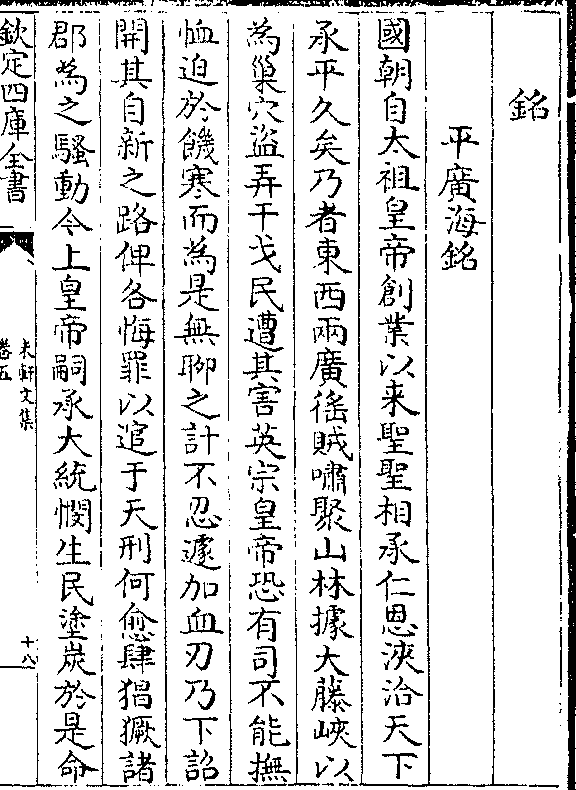 銘
平廣海銘
國朝自太祖皇帝創業以来聖聖相承仁恩浹洽天下
承平久矣乃者東西兩廣徭賊嘯聚山林據大藤峽以
為巢穴盜弄干戈民遭其害英宗皇帝恐有司不能撫
恤迫於饑寒而為是無聊之計不忍遽加血刃乃下詔
開其自新之路俾各悔罪以逭于天刑何愈肆猖獗諸
郡為之騷動今上皇帝嗣承大統憫生民塗炭於是命
欽定四庫全書
卷五
十八